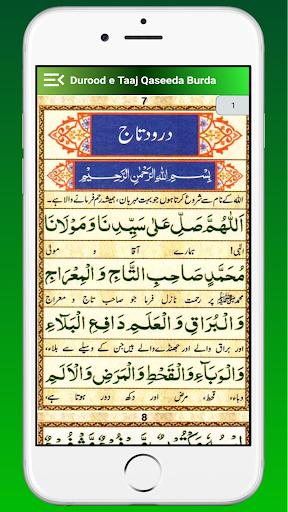 Durood e Taaj Qaseeda Burda
7
1
درود تاج
بِسْمِ اللهِ الرَّحْمٰنِ الرَّحِيْمِ
اللہ کے نام سے شروع کرتا ہوں جو بہت مہربان، ہمیشہ رحم فرمانے والا ہے۔
اَللّٰهُمَّ صَلِّ عَلٰى سَيِّدِنَا وَمَوْلَانَا
الٰہی! ہمارے آقا و مولی
مُحَمَّدٍ صَاحِبِ التَّاجِ وَالْمِعْرَاجِ
محمدﷺ پر رحمت نازل فرما جو صاحب تاج و معراج
وَالْبُرَاقِ وَالْعَلَمِ دَافِعِ الْبَلَاءِ
اور براق والے اور جھنڈے والے ہیں جن کے وسیلے سے بلاء،
وَالْوَبَاءِ وَالْقَحْطِ وَالْمَرَضِ وَالْاَلَمِ
وباء، قحط، مرض اور دکھ دور ہوتا ہے،
8